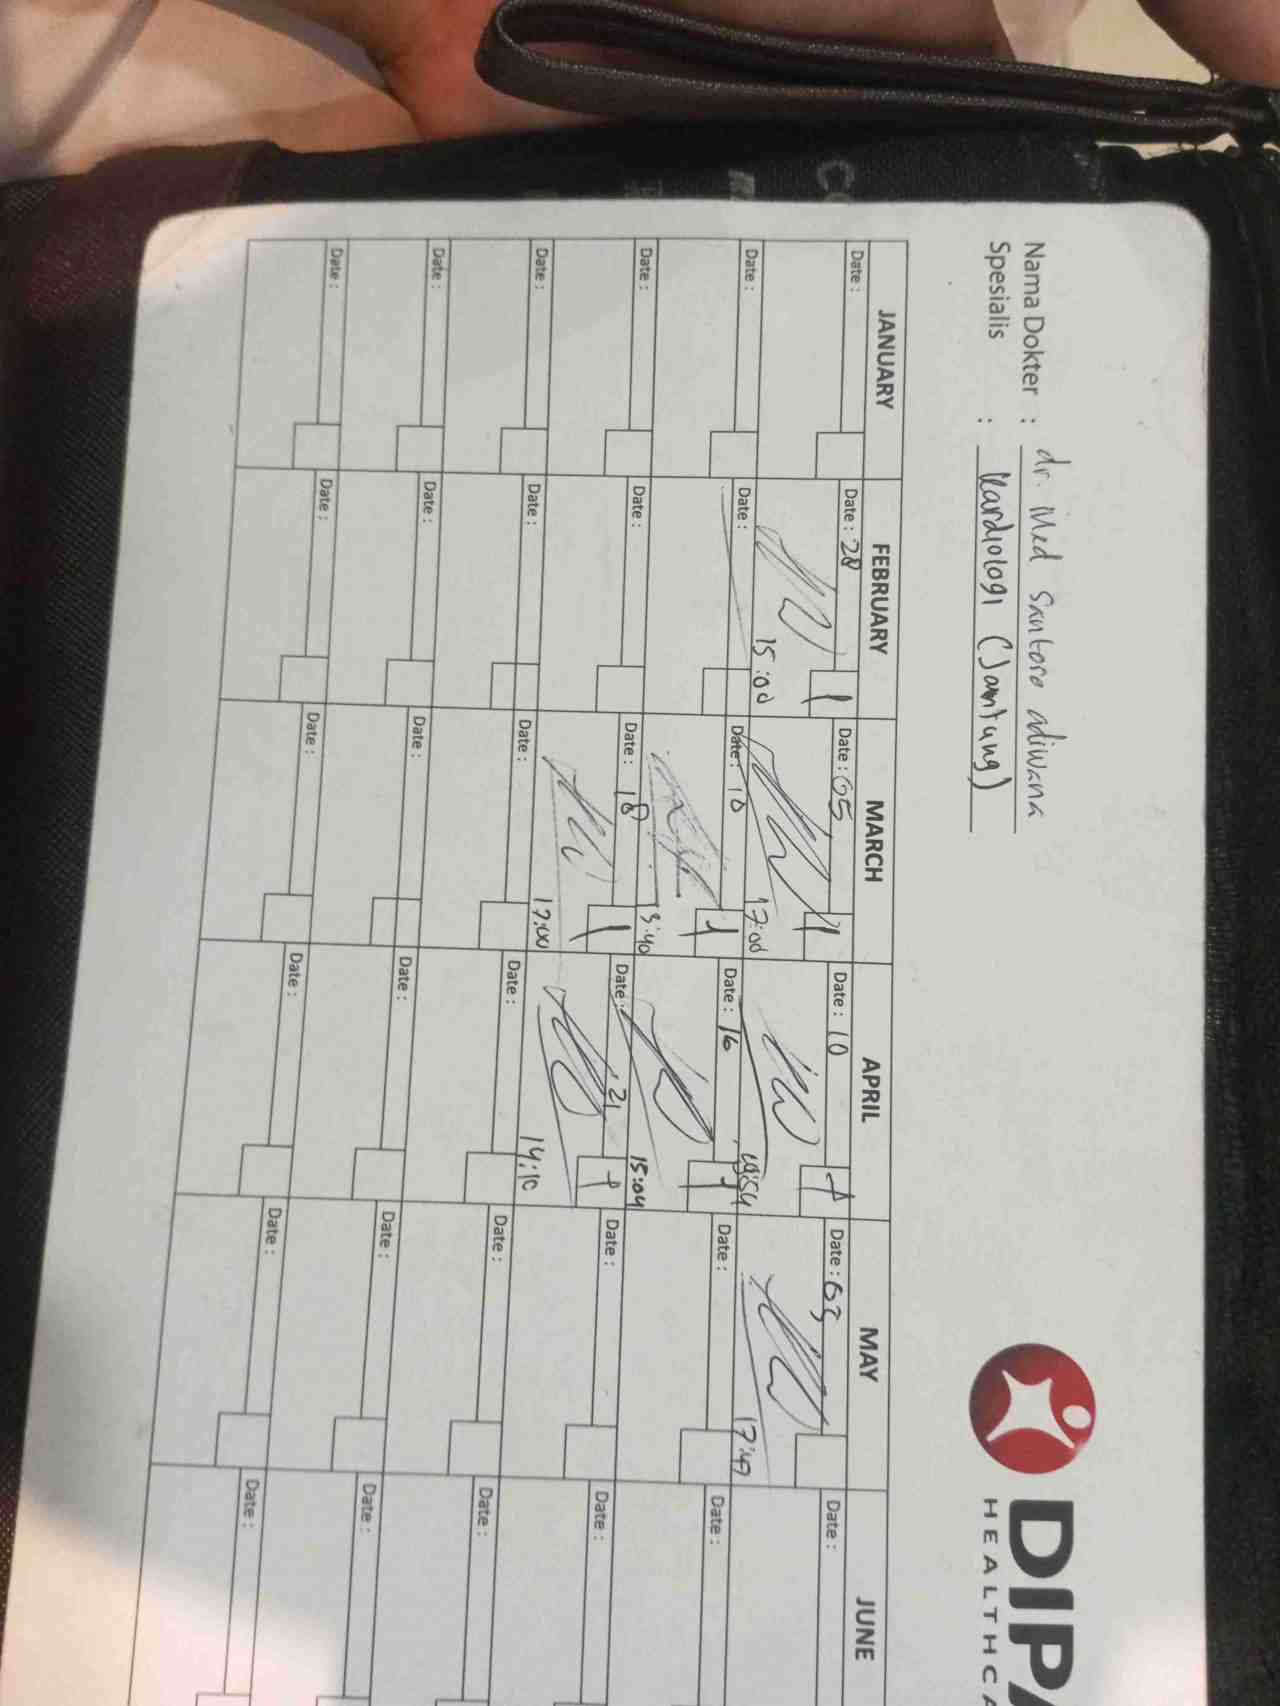 Nama Dokter : dr. Med Santoso adiwana
Spesialis : Kardiologi (Jantung)
DIPA
HEALTHCA
JANUARY FEBRUARY MARCH APRIL MAY JUNE
Date : Date : 28 Date : 05 Date : 10 Date : 03 Date :
15:00 17:00 17:47
Date : Date : Date : 10 Date : 16 Date : Date :
15:04
Date : Date : Date : 18 Date : 21 Date : Date :
17:00 14:10
Date : Date : Date : Date : Date : Date :
Date : Date : Date : Date : Date : Date :
Date : Date : Date : Date : Date : Date :